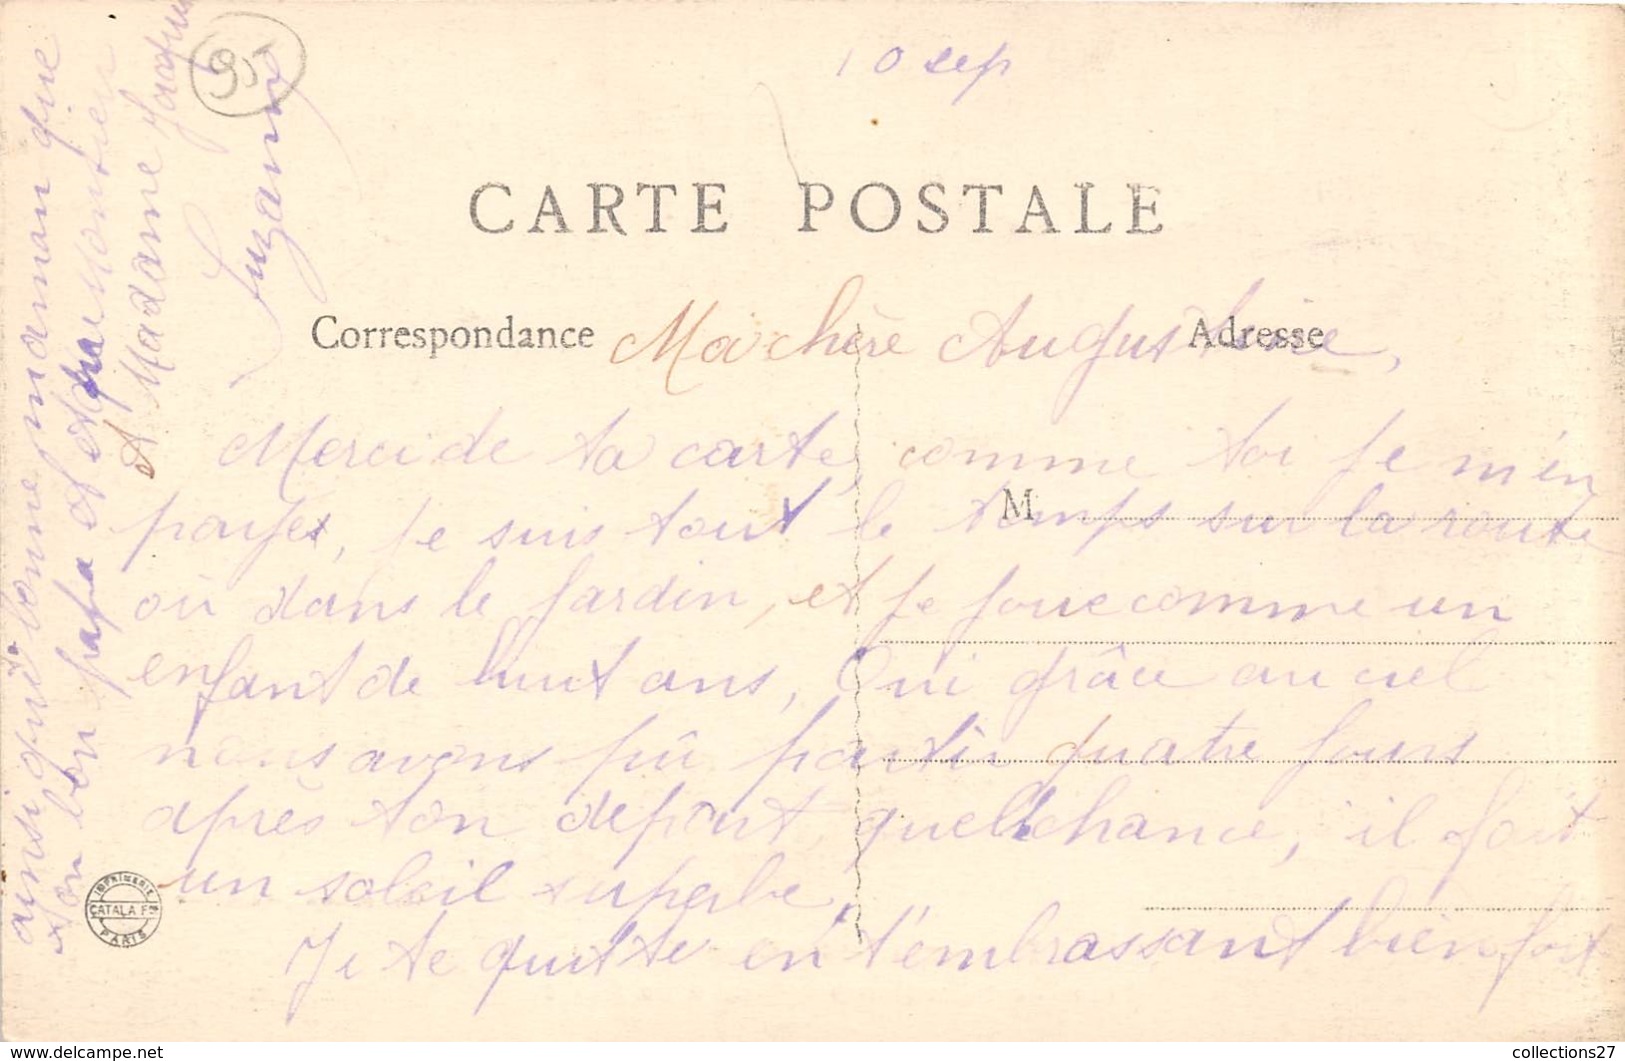 95
10 sep
CARTE POSTALE
Correspondance
Adresse
M
Ma chère Augustine,
Merci de ta carte, comme toi je m'en
payes, je suis tout le temps sur la route
où dans le jardin, et je joue comme un
enfant de huit ans, Oui grâce au ciel
nous avons pû partir quatre jours
après ton depart, quelle chance, il fait
un soleil superbe,
Je te quitte en t'embrassant bien fort
ainsi que bonne maman que
ton bon papa et
A Madame
Suzanne
IMPRIMERIE
CATALA Fres
PARIS
https://www.delcampe.net
collections27